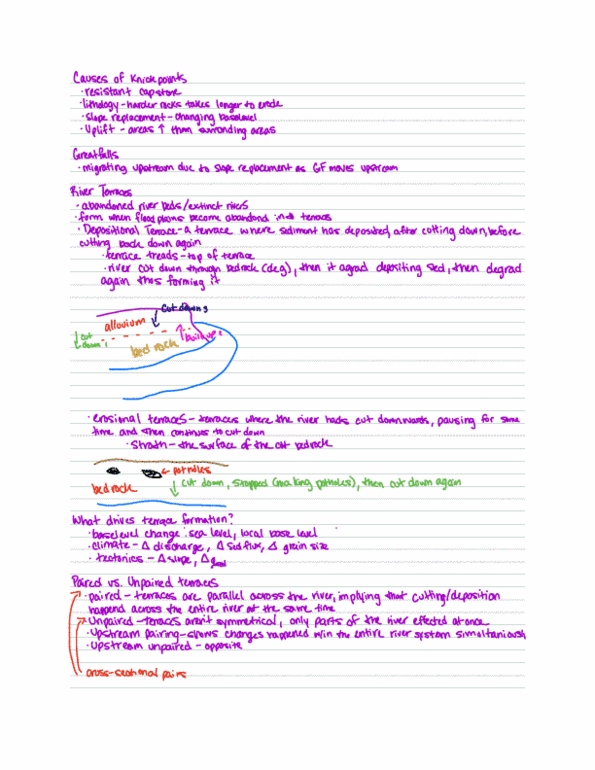 Causes of Knickpoints
· resistant capstone
· lithology - harder rocks takes longer to erode
· slope replacement - changing baselevel
· Uplift - areas ↑ than surronding areas
Greatfalls
· migrating upstream due to slope replacement as GF moves upstream
River Terraces
· abandoned river beds/extinct rivers
· form when floodplains become abandond into terraces
· Depositional Terrace - a terrace where sediment has deposited, after cutting down, before
cutting back down again
· terrace treads - top of terrace
· river cut down through bedrock (deg), then it agrad depositing sed, then degrad
again thus forming it
cut down 3
alluvium
cut
down 1
build up 2
bedrock
· erosional terraces - terraces where the river hads cut downwards, pausing for some
time and then continues to cut down
· Strath - the surface of the cut bedrock
← potholes
bedrock
↓ cut down, stopped (making potholes), then cut down again
What drives terrace formation?
· baselevel change: sea level, local base level
· climate - Δ discharge, Δ sed flux, Δ grain size
· tectonics - Δ slope, Δ
Paired vs. Unpaired terraces
· paired - terraces are parallel across the river, implying that cutting/deposition
happend across the entire river at the same time
· Unpaired - terraces arent symmetrical, only parts of the river effected at once
· Upstream pairing - shows changes happened w/in the entire river system simultaniously
· Upstream unpaired - opposite
cross-sectional pairs